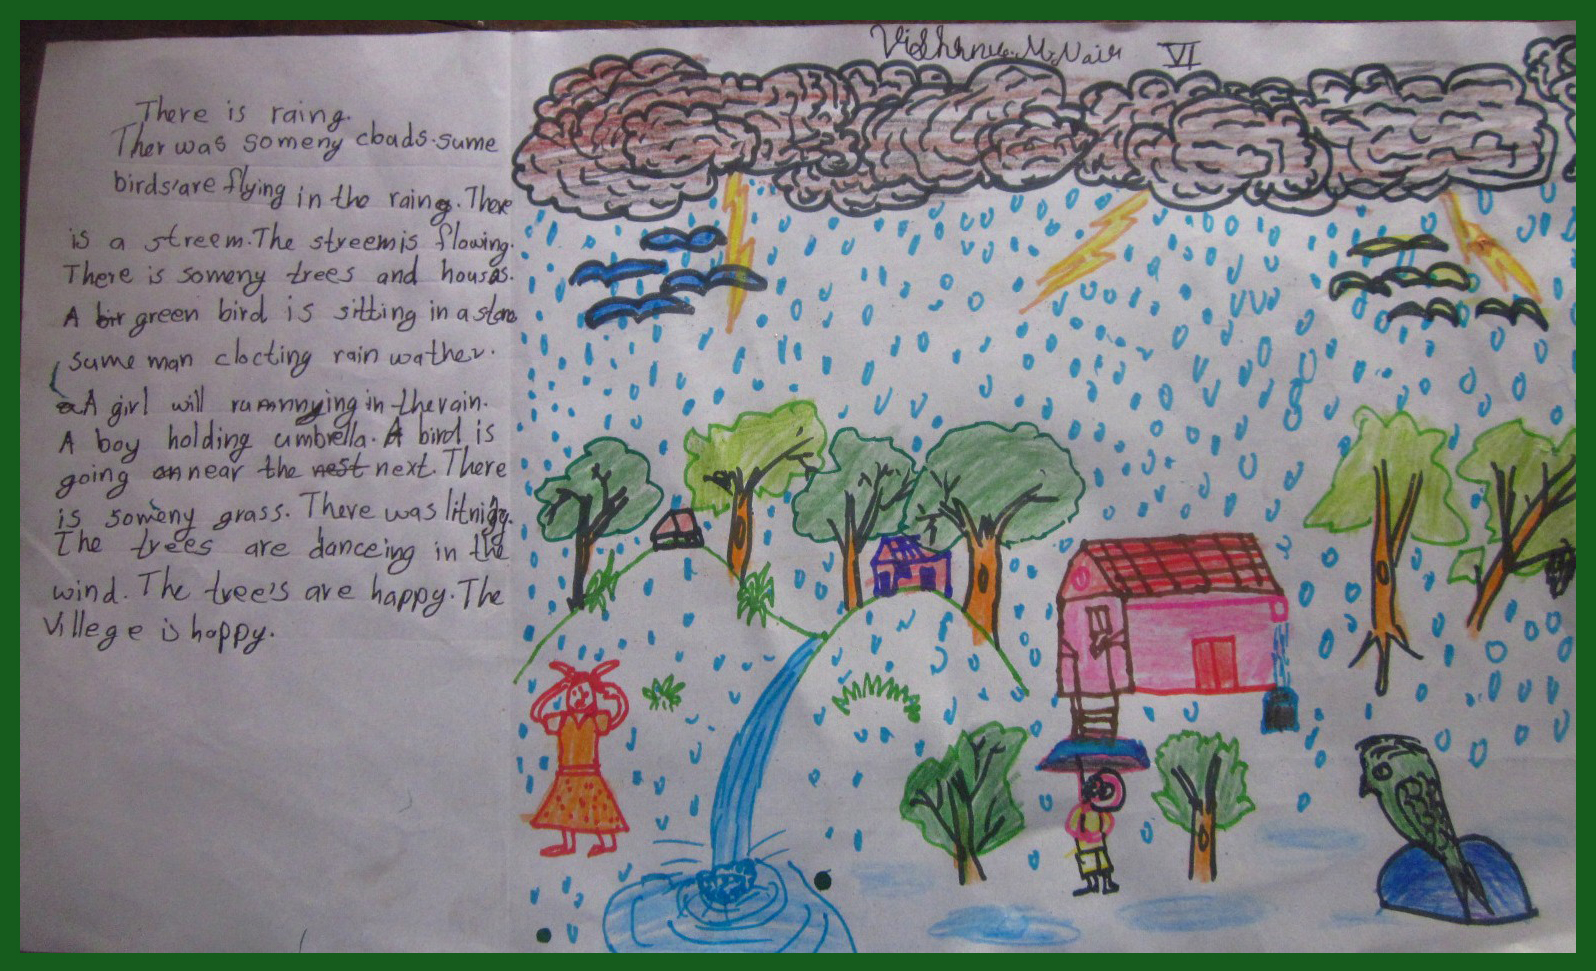 Vishnu.M.Nair VI
There is raing.
Ther was someny cloads.sume
birds are flying in the raing. There
is a streem.The streem is flowing.
There is someny trees and houses.
A bir green bird is sitting in a stone
sume man clocting rain wather.
A girl will runnying in the rain.
A boy holding umbrella. A bird is
going on near the nest next. There
is someny grass. There was litnigg.
The trees are danceing in the
wind. The tree's are happy. The
Villege is happy.